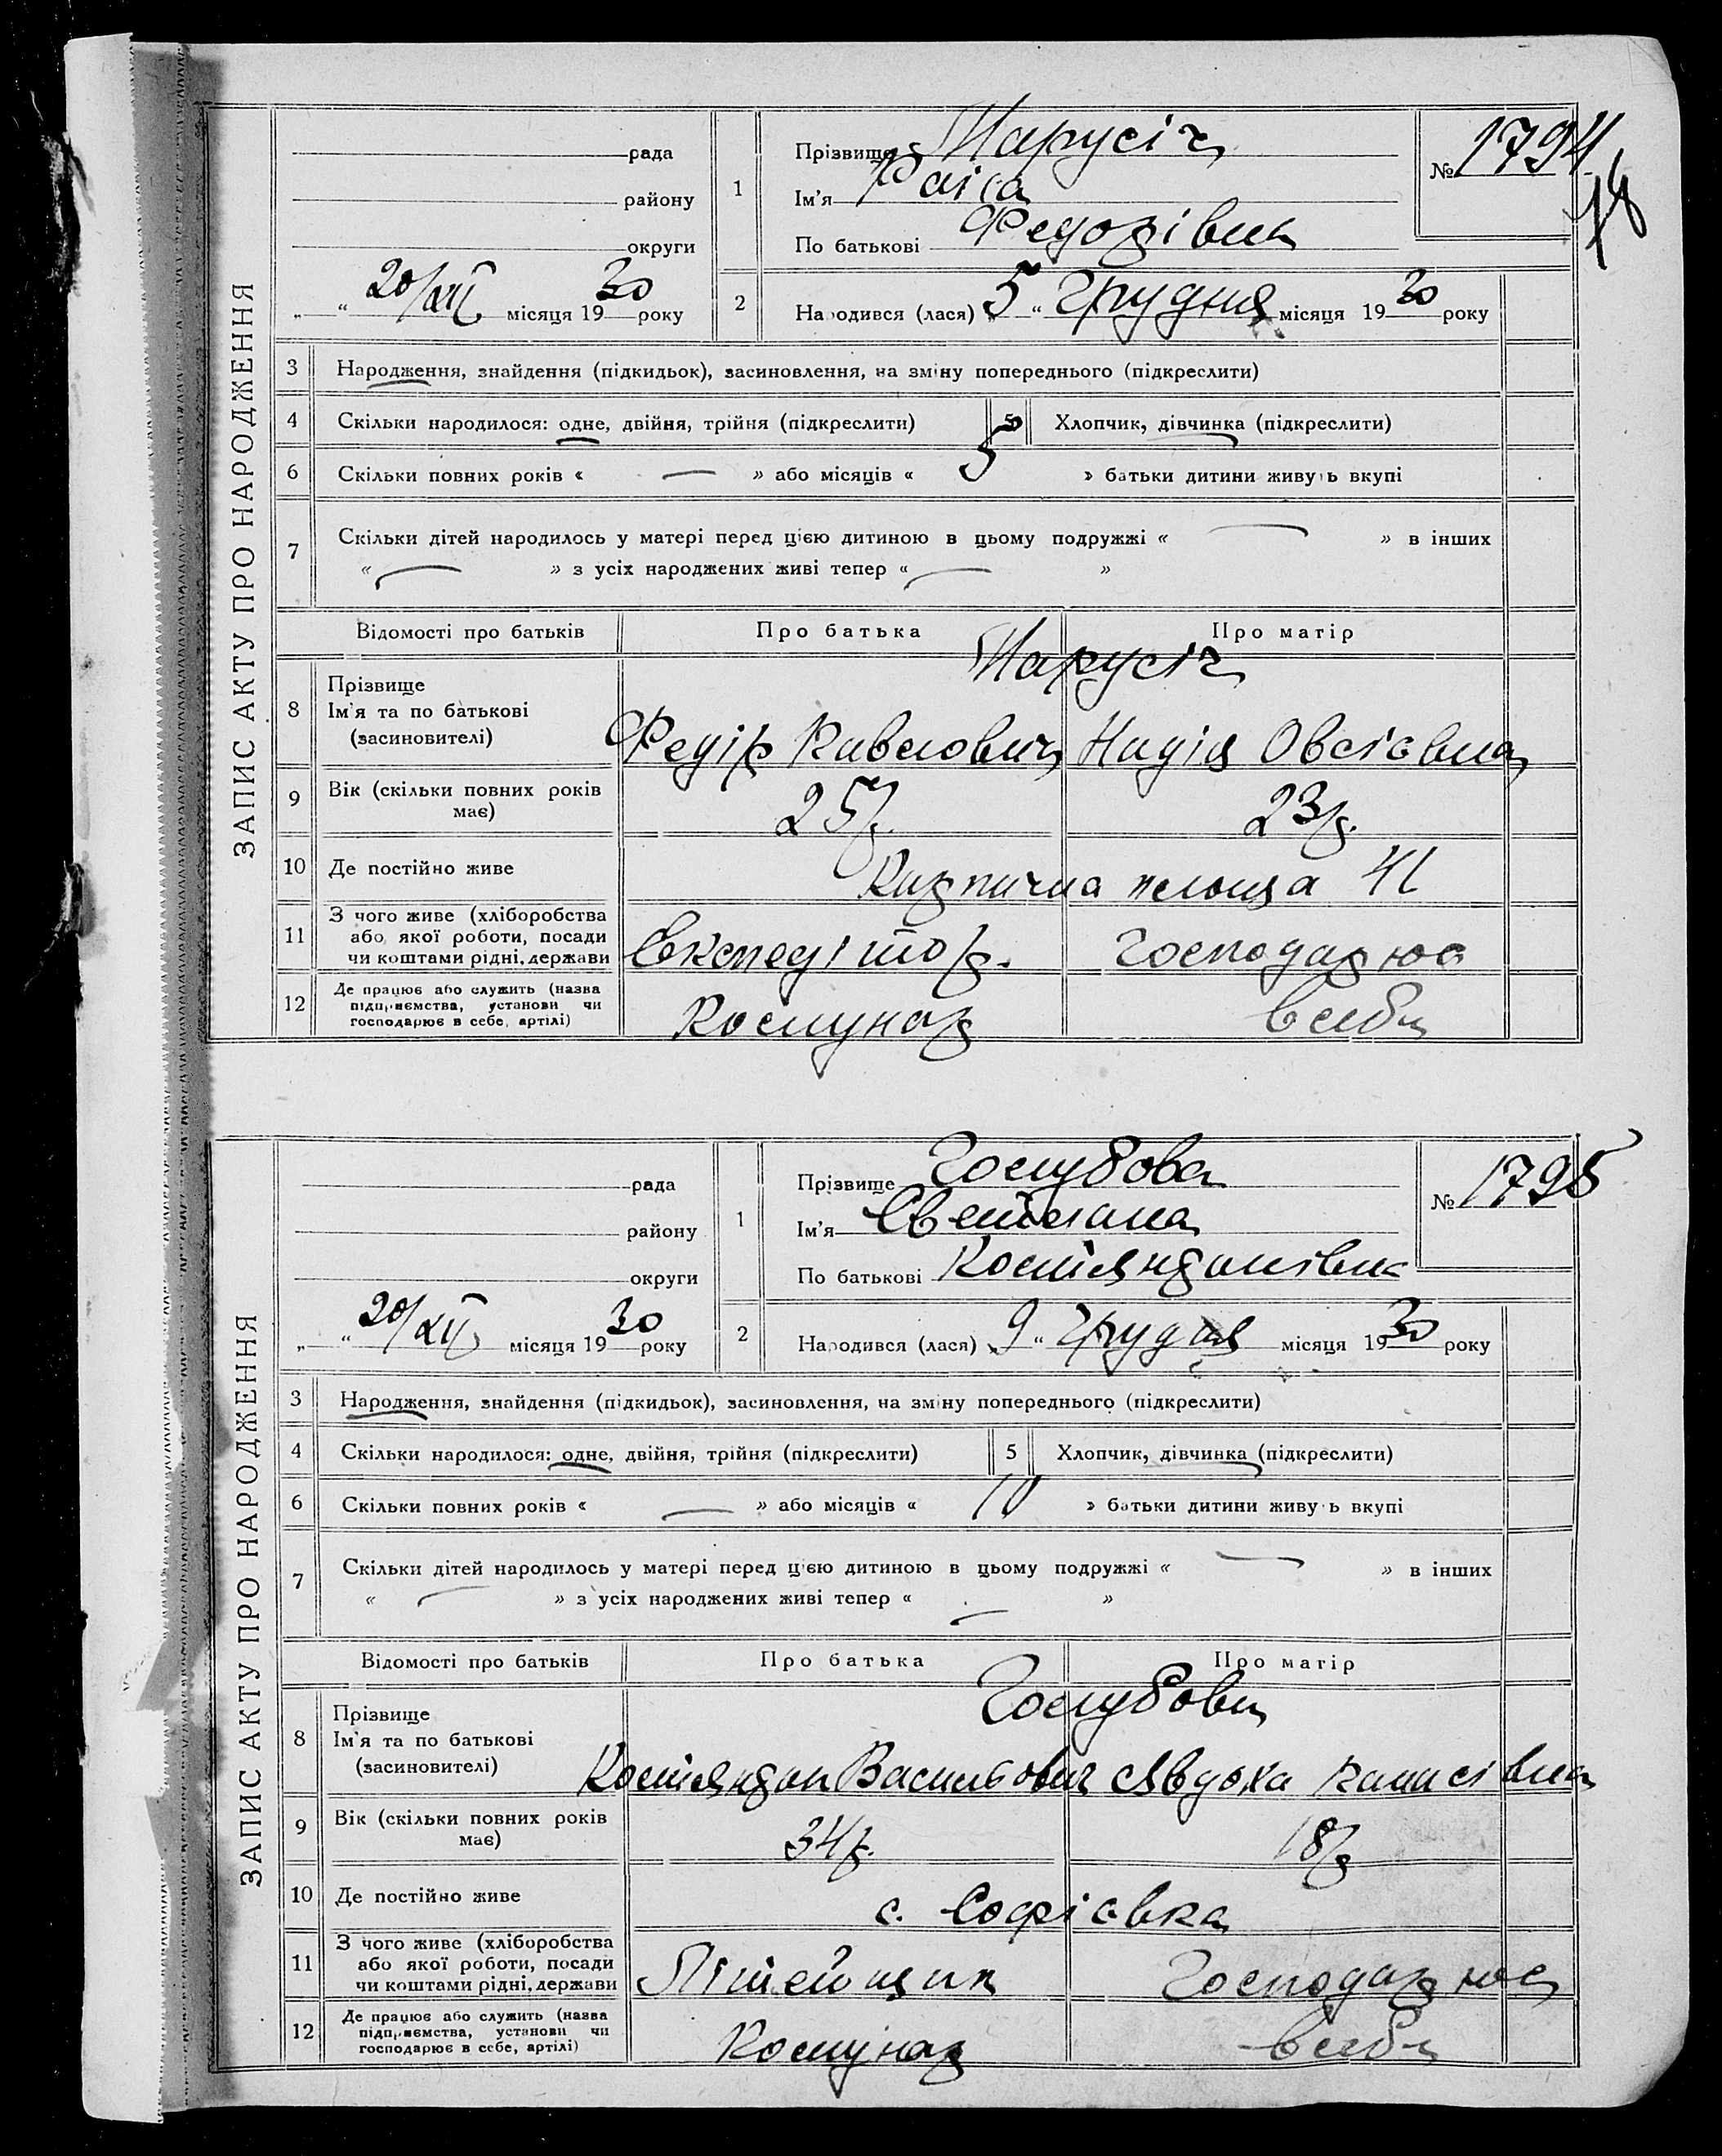 ЗАПИС АКТУ ПРО НАРОДЖЕННЯ
рада
району
округи
„ “ 20/XII місяця 1930 року
1
Прізвище Марусіч
Ім'я Раїса
По батькові Федорівна
№ 1794
78
2
Народився (лася) „5“ Грудня місяця 1930 року
3 Народження, знайдення (підкидьок), засиновлення, на зміну попереднього (підкреслити)
4 Скільки народилося: одне, двійня, трійня (підкреслити) 5 Хлопчик, дівчинка (підкреслити)
6 Скільки повних років « — » або місяців « 5 » батьки дитини живуть вкупі
7 Скільки дітей народилось у матері перед цією дитиною в цьому подружжі « — » в інших
« — » з усіх народжених живі тепер « — »
Відомості про батьків Про батька Про матір
8 Прізвище
Ім'я та по батькові
(засиновителі)
Марусіч
Федір Надія Овсіївна
9 Вік (скільки повних років має) 25 р. 23 р.
10 Де постійно живе площа
11 З чого живе (хліборобства
або якої роботи, посади
чи коштами рідні, держави
Експедітор. Господарює
12 Де працює або служить (назва
підприємства, установи чи
господарює в себе, артілі)
Комунар в себе
ЗАПИС АКТУ ПРО НАРОДЖЕННЯ
рада
району
округи
„ “ 20/XII місяця 1930 року
1
Прізвище Голубова
Ім'я Светлана
По батькові Костянтинівна
№ 1795
2
Народився (лася) „9“ Грудня місяця 1930 року
3 Народження, знайдення (підкидьок), засиновлення, на зміну попереднього (підкреслити)
4 Скільки народилося: одне, двійня, трійня (підкреслити) 5 Хлопчик, дівчинка (підкреслити)
6 Скільки повних років « — » або місяців « 10 » батьки дитини живуть вкупі
7 Скільки дітей народилось у матері перед цією дитиною в цьому подружжі « — » в інших
« — » з усіх народжених живі тепер « — »
Відомості про батьків Про батька Про матір
8 Прізвище
Ім'я та по батькові
(засиновителі)
Голубови
Костянтин Васильович Явдоха
9 Вік (скільки повних років має) 34 р. 18 р
10 Де постійно живе с. Софієвка
11 З чого живе (хліборобства
або якої роботи, посади
чи коштами рідні, держави
Літейщик Господарює
12 Де працює або служить (назва
підприємства, установи чи
господарює в себе, артілі)
Комунар в себе